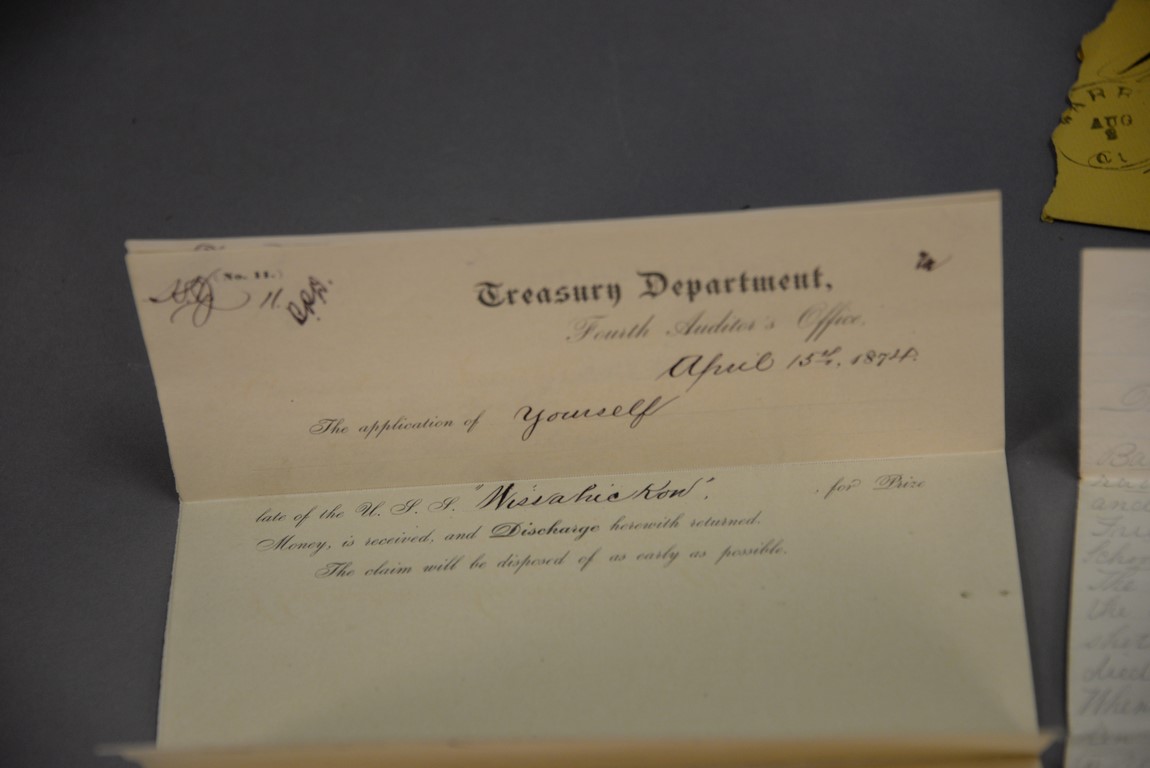 (No. 11.)
11.
Treasury Department,
Fourth Auditor's Office.
April 15th, 1874.
The application of Yourself
late of the U. S. S. "Wissahickon", for Prize
Money, is received, and Discharge herewith returned.
The claim will be disposed of as early as possible.
AUG
and
the
the
When